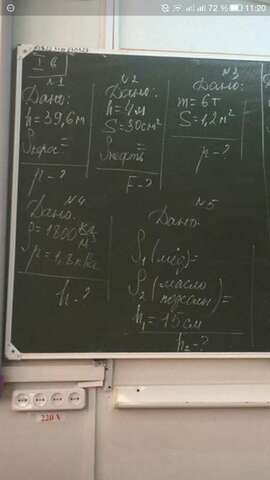 72 % 11:20
I в
N1
Дано:
h = 39,6м
ρкерос =
p - ?
N2
Дано:
h = 4м
S = 30 см²
ρнефть =
F - ?
N3
Дано:
m = 6т
S = 1,2 м²
p - ?
N4
Дано:
ρ = 1800 кг/м³
p = 1,8 кПа
h - ?
N5
Дано:
ρ₁ (мёд) =
ρ₂ (масло
подсолн) =
h₁ = 15 см
h₂ - ?
220 V